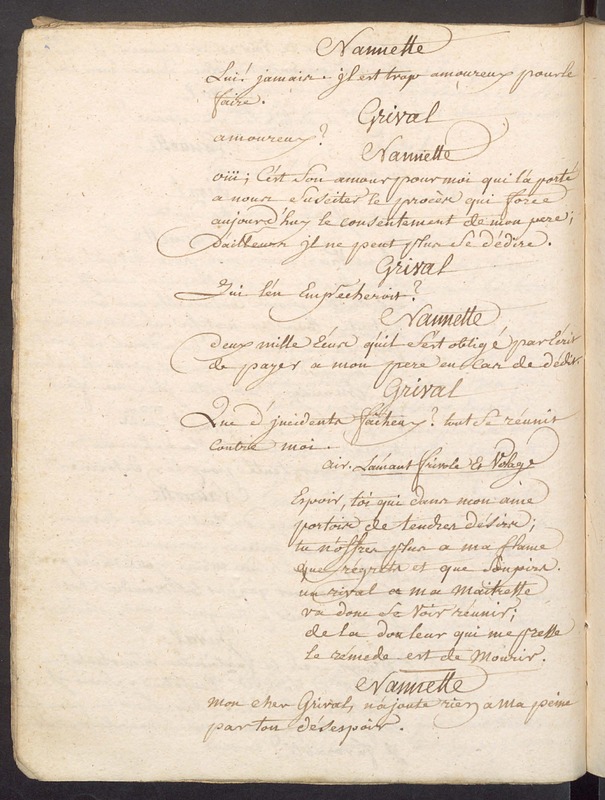 Nannette
Lui! jamais. jl est trop amoureux pour le
faire.
Grival
amoureux?
Nannette
oüi; C'est Son amour pour moi qui l'a porté
a nous Susciter le procès qui force
aujourd'huy le consentement de mon pere;
Dailleurs jl ne peut plus Se dédire.
Grival
Qui l'en Empêcheroit?
Nannette
deux mille Ecus qu'il s'est obligé par Ecrit
de payer a mon pere en Cas de dédit.
Grival
Que d'jncidents fâcheux? tout Se réunit
contre moi.
air. L'amant frivole Et Volage
Espoir, toi qui dans mon ame
portois de tendres désirs;
tu n'offres plus a ma flame
que regrets et que Soupirs.
un rival a ma Maitresse
va donc Se Voir réunir;
de la douleur qui me presse
le rémede est de Mourir.
Nannette
mon cher Grival, n'ajoute rien a ma peine
par ton désespoir.